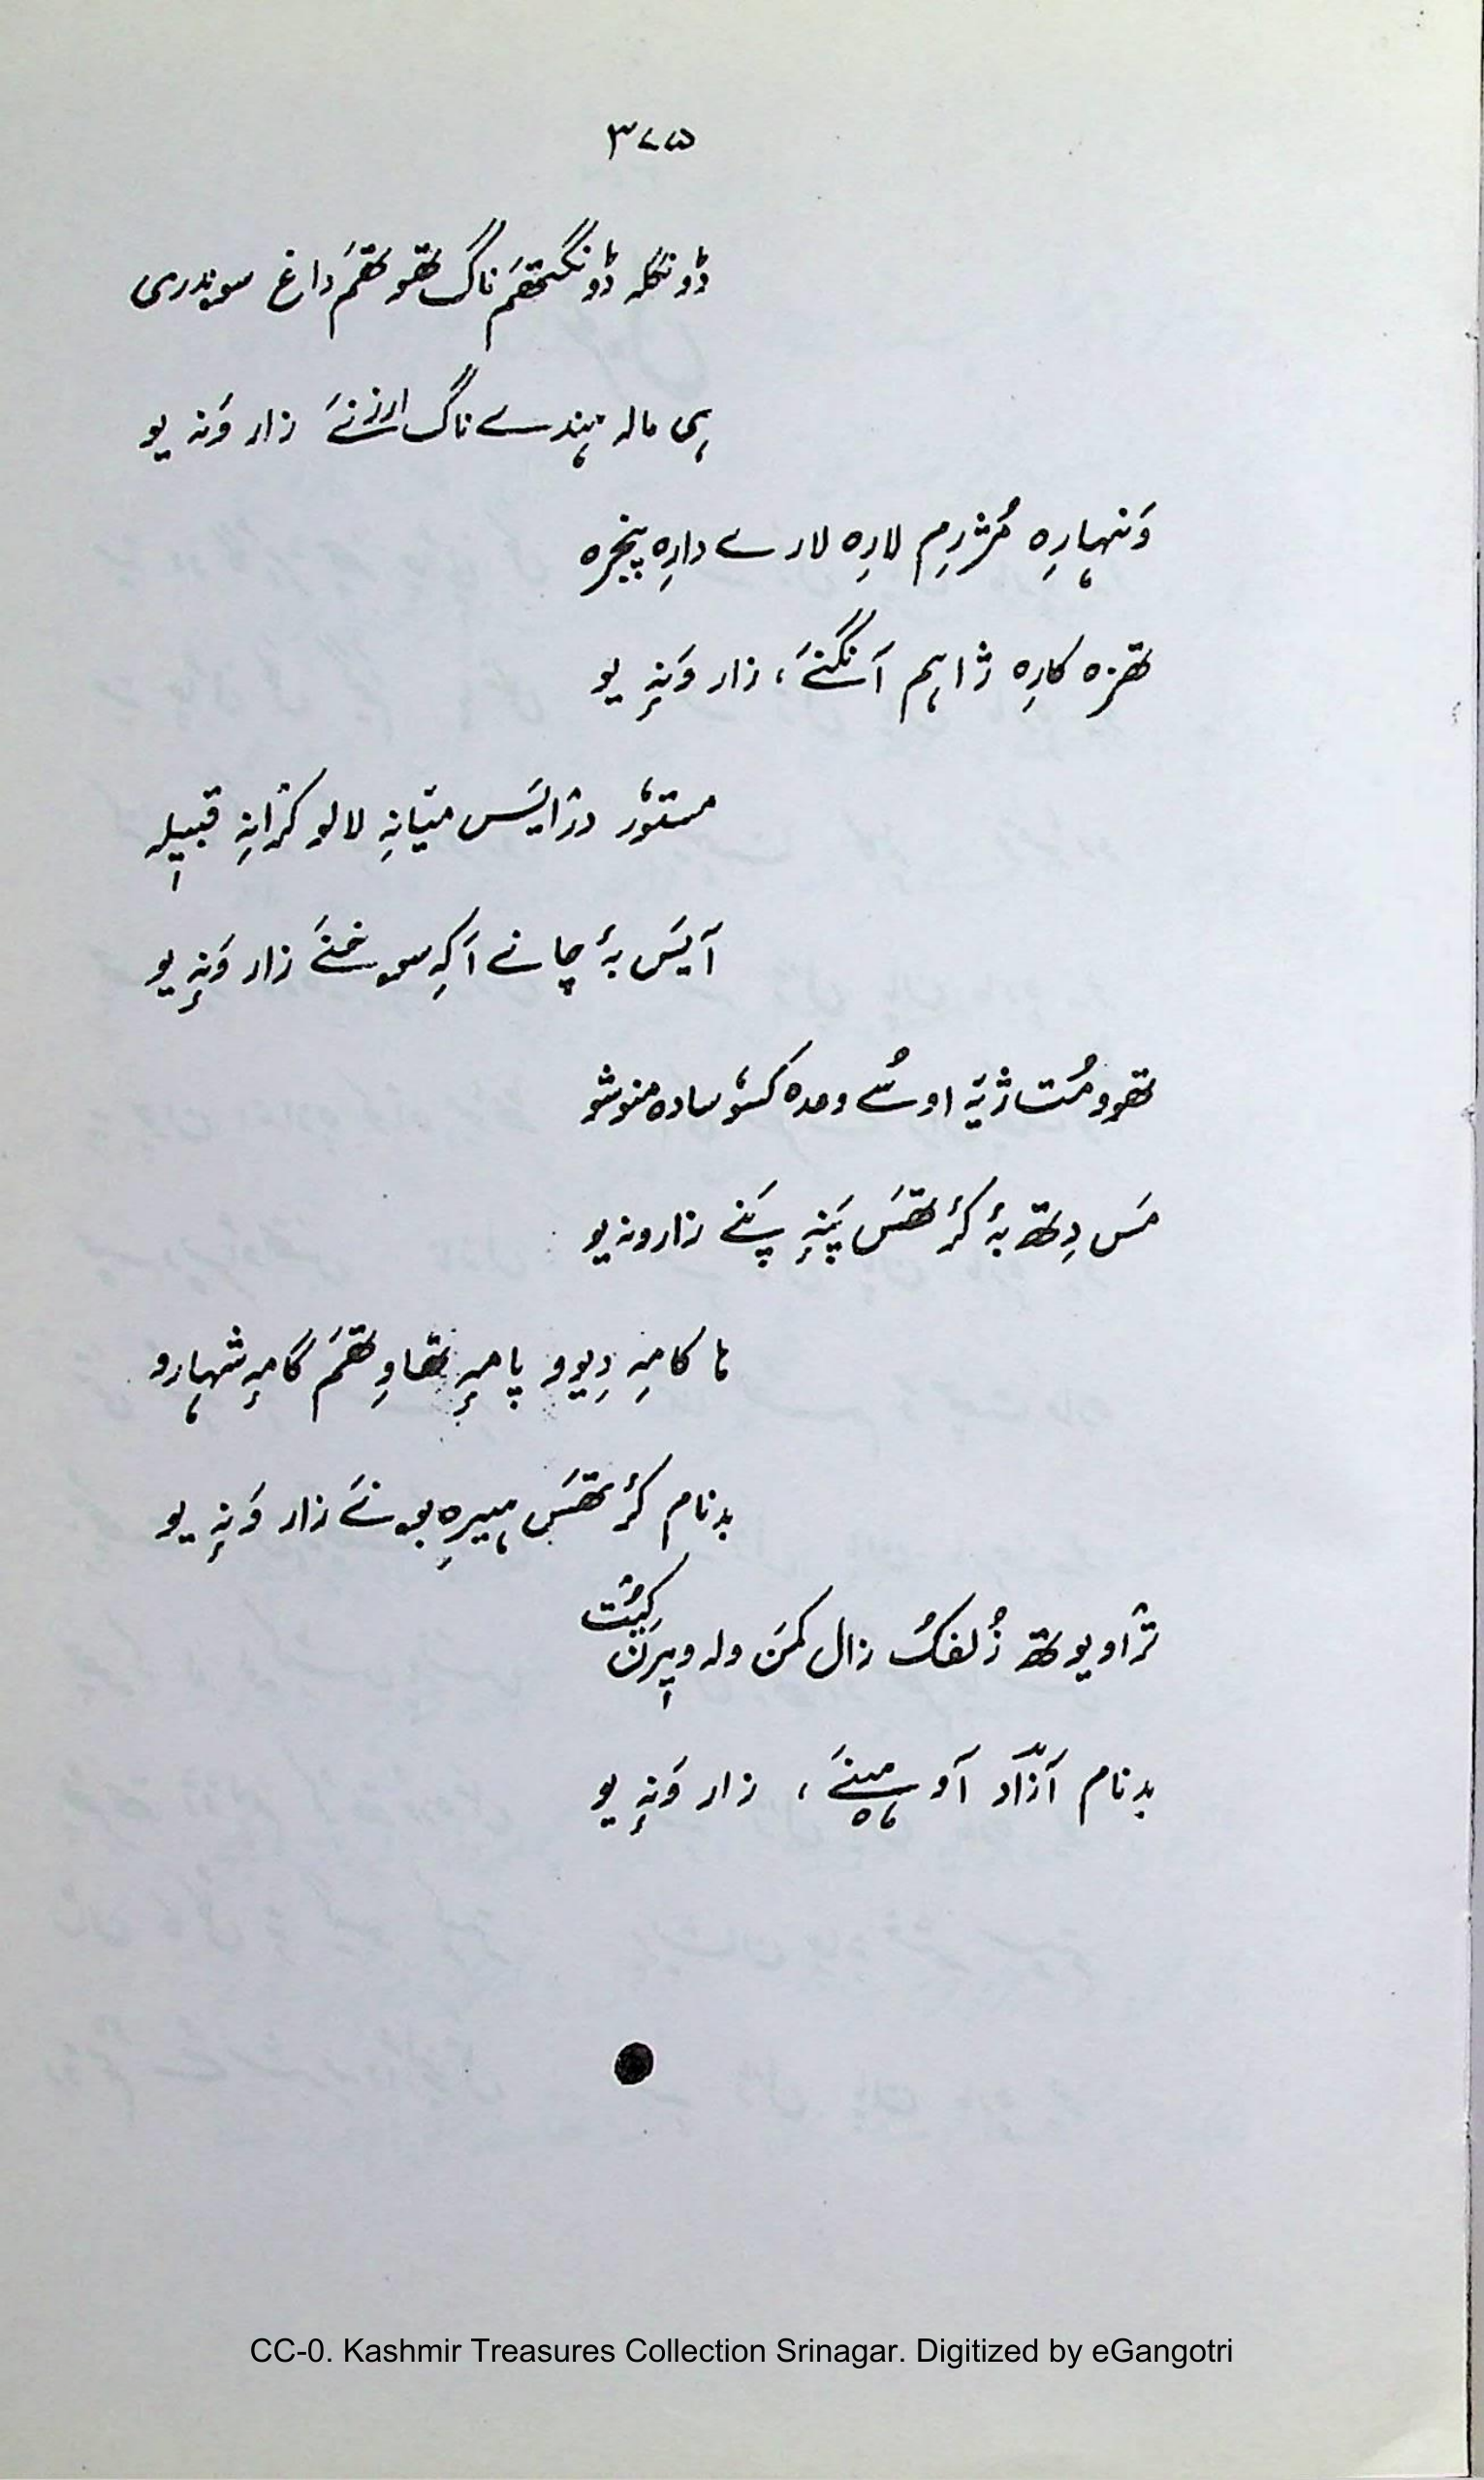 ۳۷۵
ڈونگلہ ڈونگتھَم ناگ تھوتھَم داغ سوندری
ہی مالہ ہندے ناگ ارزنےَ زار وَنہ یو
وَنہارِہ مُژرِم لارِہ لارے دارِہ پنجرہ
تھزہ کارِہ ژاہم آنگنےَ، زار وَنہٕ یو
مستوٗر درٛایَس میٛانہِ لالو کرٛانہِ قبیلہ
آیَس بۂ چانے اَکہِ سوخنےَ زار وَنہٕ یو
تھوومُت ژیٚہ اوسُے وعدہ کسوٗ سادہ منوشو
مَس دِتھ بۂ کٔرتھَس پَنہٕ پَنے زار ونہ یو
ناکامہِ دِیوو پامہٕ تھاوِتھَم گامہٕ شہارو
بدنام کٔرتھَس ہیرِہ بونےَ زار وَنہٕ یو
ترٛاویوتھ زُلفُک زال کمَن ولہ ویرَن کیُٚت
بدنام آزٓاد آو ہینےَ، زار وَنہٕ یو
CC-0. Kashmir Treasures Collection Srinagar. Digitized by eGangotri